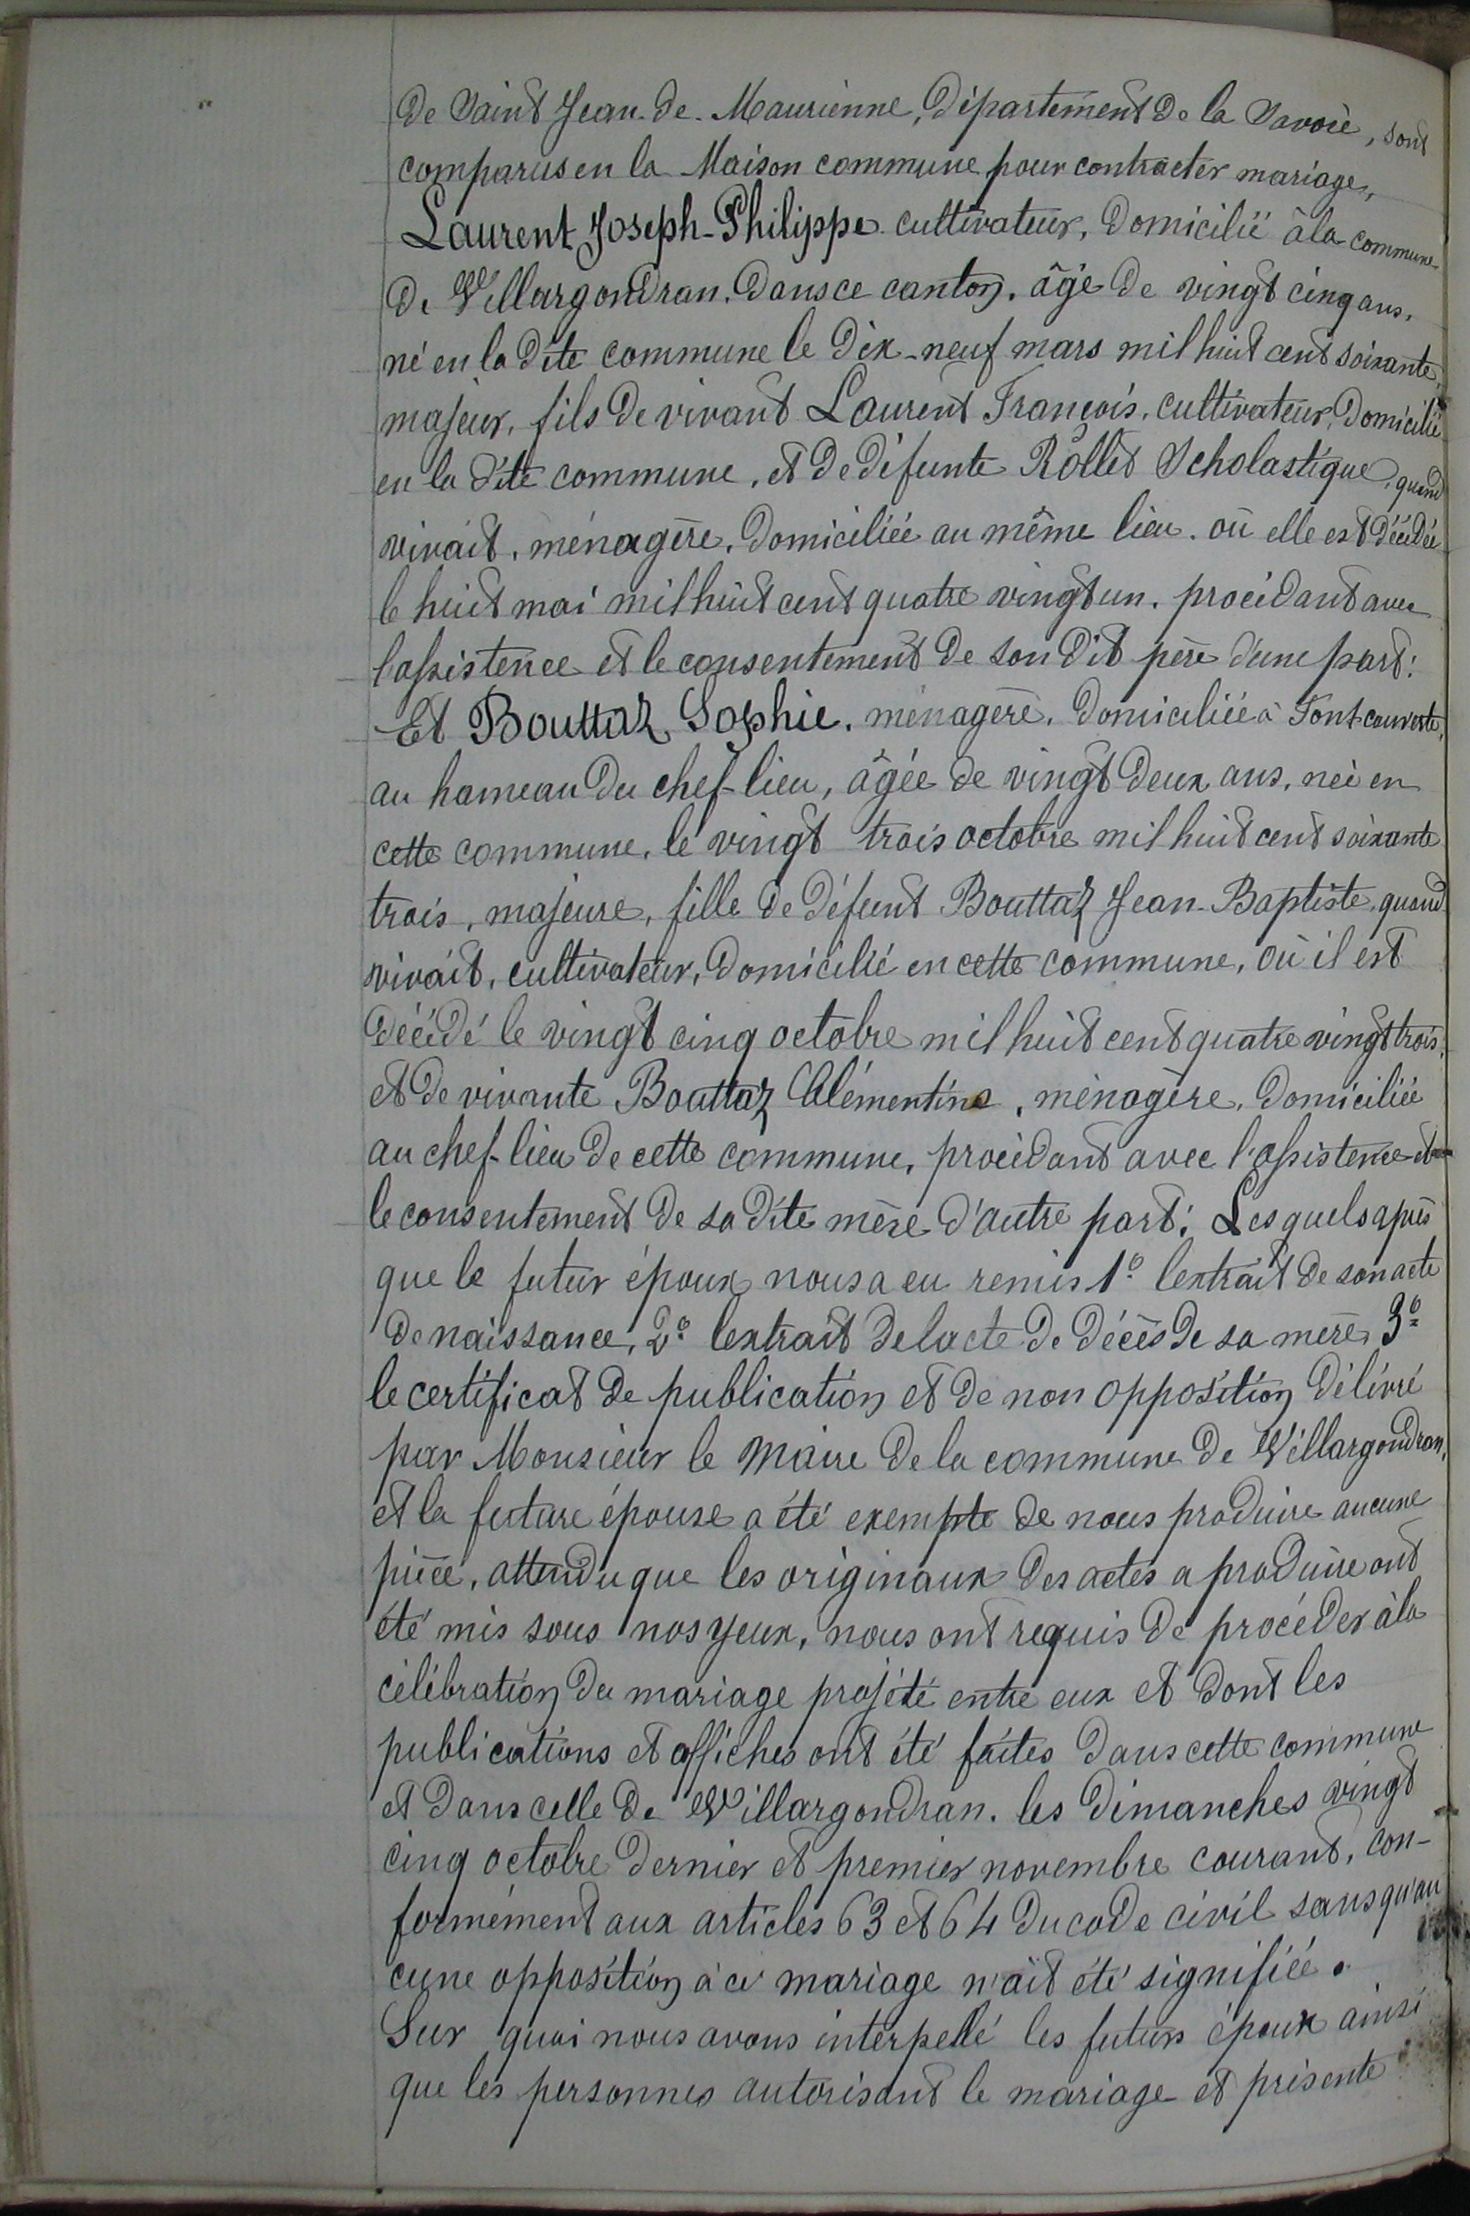 de Saint Jean-de-Maurienne, département de la Savoie, sont
comparus en la Maison commune pour contracter mariage,
Laurent Joseph-Philippe cultivateur, domicilié à la commune
de Villargondran, dans ce canton, âgé de vingt cinq ans,
né en la dite commune le dix-neuf mars mil huit cent soixante,
majeur, fils de vivant Laurent François, cultivateur, domicilié
en la dite commune, et de défunte Rollet Scholastique, quand
vivait, ménagère, domiciliée au même lieu, où elle est décédée
le huit mai mil huit cent quatre vingt un, procédant avec
l'assistence et le consentement de son dit père d'une part;
Et Bouttaz Sophie, ménagère, domiciliée à Fontcouverte,
au hameau du chef-lieu, âgée de vingt deux ans, née en
cette commune, le vingt trois octobre mil huit cent soixante
trois, majeure, fille de défunt Bouttaz Jean-Baptiste, quand
vivait, cultivateur, domicilié en cette commune, où il est
décédé le vingt cinq octobre mil huit cent quatre vingt trois,
et de vivante Bouttaz Clémentine, ménagère, domiciliée
au chef-lieu de cette commune, procédant avec l'assistence et
le consentement de sa dite mère d'autre part; Lesquels après
que le futur époux nous a eu remis 1° l'extrait de son acte
de naissance, 2° l'extrait de l'acte de décès de sa mère, 3°
le certificat de publication et de non opposition délivré
par Monsieur le Maire de la commune de Villargondran,
et la future épouse a été exempte de nous produire aucune
pièce, attendu que les originaux des actes a produire ont
été mis sous nos yeux, nous ont requis de procéder à la
célébration du mariage projeté entre eux et dont les
publications et affiches ont été faites dans cette commune
et dans celle de Villargondran, les dimanches vingt
cinq octobre dernier et premier novembre courant, con-
formément aux articles 63 et 64 du code civil sans qu'au
cune opposition à ce mariage n'ait été signifiée.
Sur quoi nous avons interpellé les futurs époux ainsi
que les personnes autorisant le mariage et présente